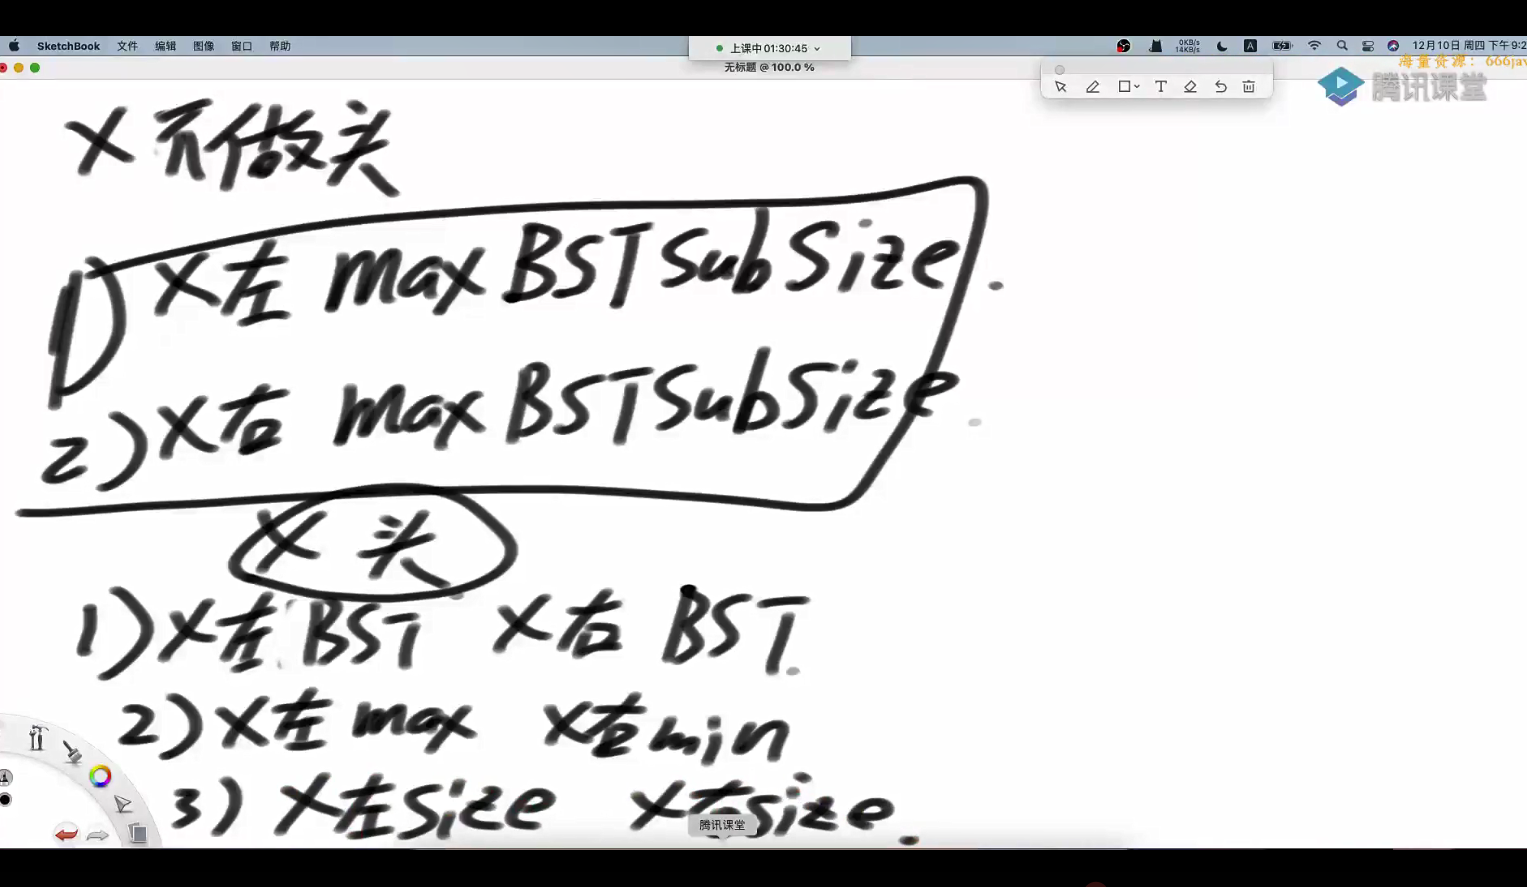 SketchBook 文件 编辑 图像 窗口 帮助
上课中 01:30:45
0KB/s
14KB/s
A
12月10日 周四 下午9:2
无标题 @ 100.0 %
海量资源：666jav
T
腾讯课堂
X 不做头
1) X左 max BST SubSize.
2) X右 max BST SubSize.
X 头
1) X左 BST X右 BST.
2) X左 max X右 min
3) X左 size X右 size.
腾讯课堂